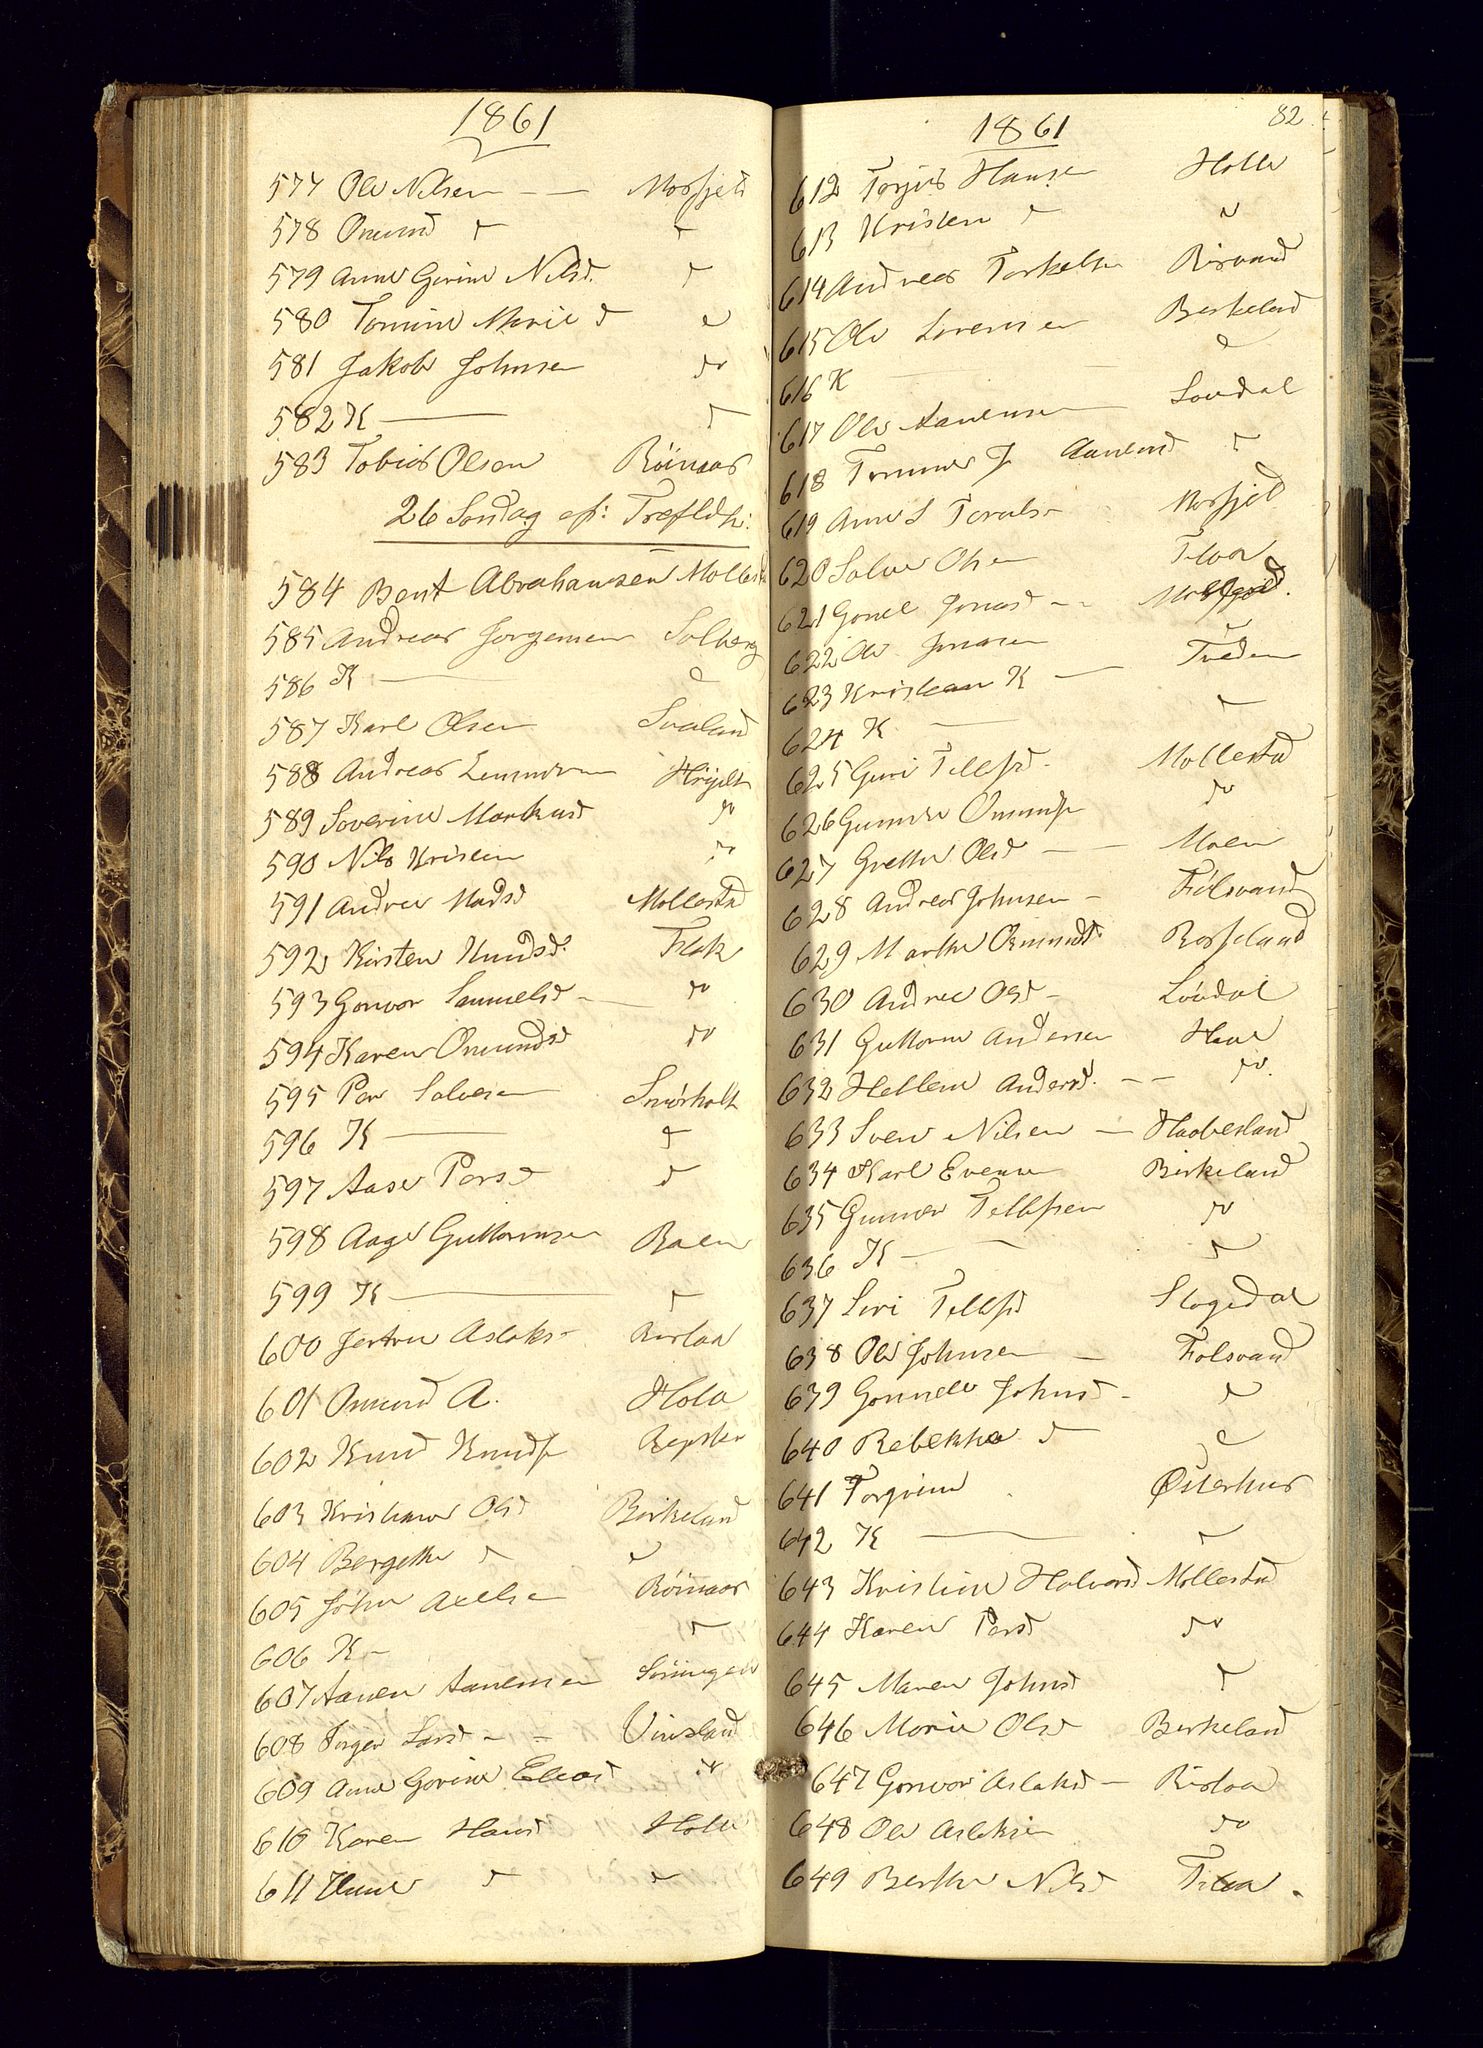 1861
577 Ole Nilsen — — Mosfjeld
578 Omund d d
579 Anne Gurine Nilsd. d
580 Tomine Marie d d
581 Jakob Johnsen do
582 K — d
583 Tobias Olsen Röinaas
26 Søndag ef: Trefldh:
584 Bent Abrahamsen Mollestad
585 Andreas Jorgensen Solberg
586 K — d
587 Karl Olsen Svaland
588 Andreas
589 Severine Markusd do
590 Nils Kristen do
591 Andrea Madsd Mollestad
592 Kirsten Knudsd. Flak
593 Gonvor Samuelsd — do
594 Karen Omundsd do
595 Per Salvesen
596 K — d
597 Aase Persd d
598 Aage Guttormsen Raen
599 K — d
600 Aslaks Rislaa
601 Omund A. Hola
602 Knud Knuds Repster
603 Kristiane Olsd Birkeland
604 Bergethe d d
605 John Axelsen Röinaas
606 K — d
607 Aanen Aanensen
608 Larsd — — Vinsland
609 Anne Gorine Eliasd do
610 Karen Hansd Holle
611 d d
1861 82
612 Torjus Hansen Holle
613 Kristen d d
614 Andreas Torkelsen Risvand
615 Ole Sorensen Birkeland
616 K — d
617 Ole Aanensen — Løvdal
618 J Aanensd d
619 Anne S Mosfjeld
620 Salve Olsen
621 Gonil Jonasd — —
622 Ole Jonasen
623 Kristian K — Tveden
624 K. — d
625 Guri Tellefsd. Mollestad
626 Gunder Omunds do
627 Grethe Olsd — — Moen
628 Andreas Johnsen — Fidsvand
629 Marthe Osmundsd. Rosseland
630 Andrea Olsd — Løvdal
631 Guttorm Andersen
632 Hellene Andersd. — — do.
633 Sven Nilsen — Haabesland
634 Karl Evensen Birkeland
635 Gunder Tellefsen do
636 K — d
637 Siri Tellefsd Stogedal
638 Ole Johnsen —
639 Gonnele Johnsd — d
640 Rebekka d d
641 Torgrim Østerhus
642 K — d
643 Kristine Halvorsd Mollestad
644 Karen Persd do
645 Maren Johnsd d
646 Marie Olsd Birkeland
647 Gonvor Aslaksd — Rislaa
648 Ole Aslaksen do
649 Berthe Nilsd